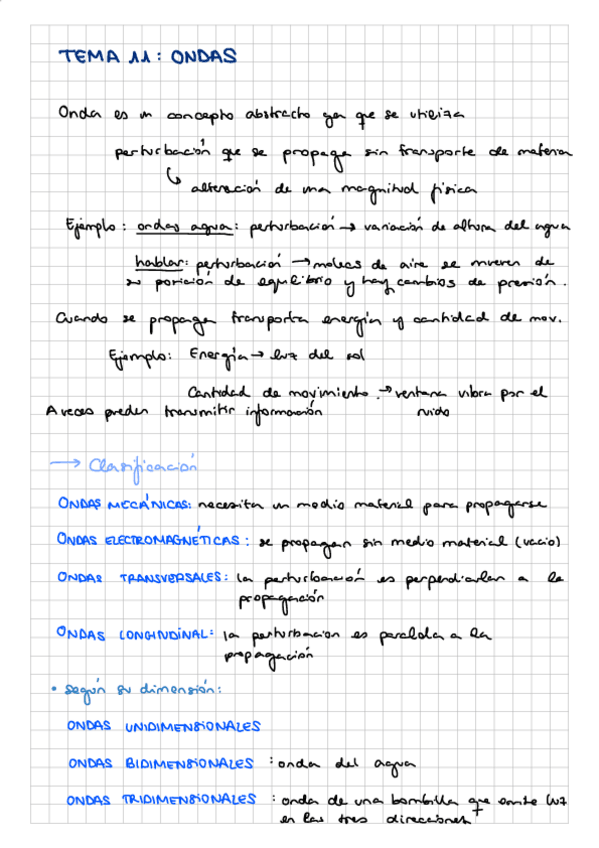 TEMA 11: ONDAS
Onda es un concepto abstracto ya que se utiliza
perturbación que se propaga sin transporte de materia
↳ alteración de una magnitud física
Ejemplo: ondas agua: perturbación → variación de altura del agua
hablar: perturbación → molecs de aire se mueven de
su posición de equilibrio y hay cambios de presión.
Cuando se propaga transporta energía y cantidad de mov.
Ejemplo: Energía → luz del sol
Cantidad de movimiento → ventana vibra por el
ruido
A veces pueden transmitir información
→ Clasificación
ONDAS MECÁNICAS: necesitan un medio material para propagarse
ONDAS ELECTROMAGNÉTICAS: se propagan sin medio material (vacio)
ONDAS TRANSVERSALES: la perturbación es perpendicular a la
propagación
ONDAS LONGINDINAL: la perturbacion es paralela a la
propagación
• según su dimensión:
ONDAS UNIDIMENSIONALES
ONDAS BIDIMENSIONALES: onda del agua
ONDAS TRIDIMENSIONALES: onda de una bombilla que emite luz
en las tres direcciones